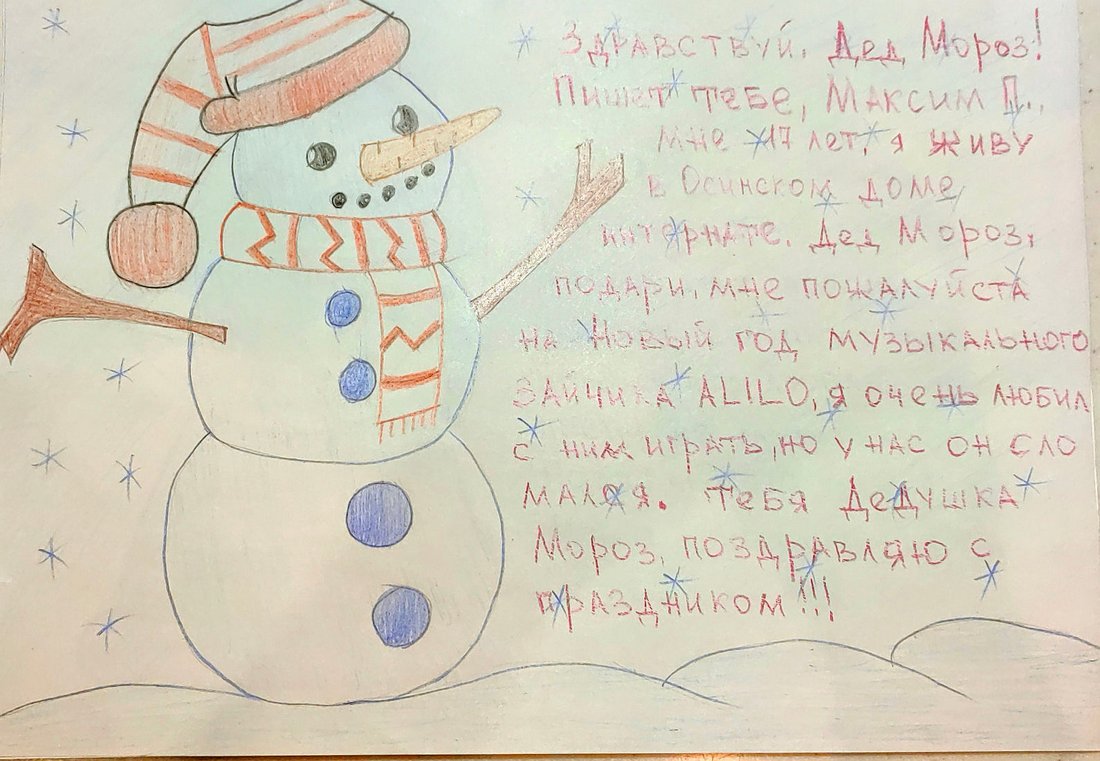 Здравствуй, Дед Мороз!
Пишет тебе, Максим П.,
мне 17 лет, я живу
в Осинском доме
интернате. Дед Мороз,
подари, мне пожалуйста
на Новый год музыкального
зайчика ALILO, я очень любил
с ним играть, но у нас он сло
малоя. Тебя Дедушка
Мороз, поздравляю с
праздником!!!